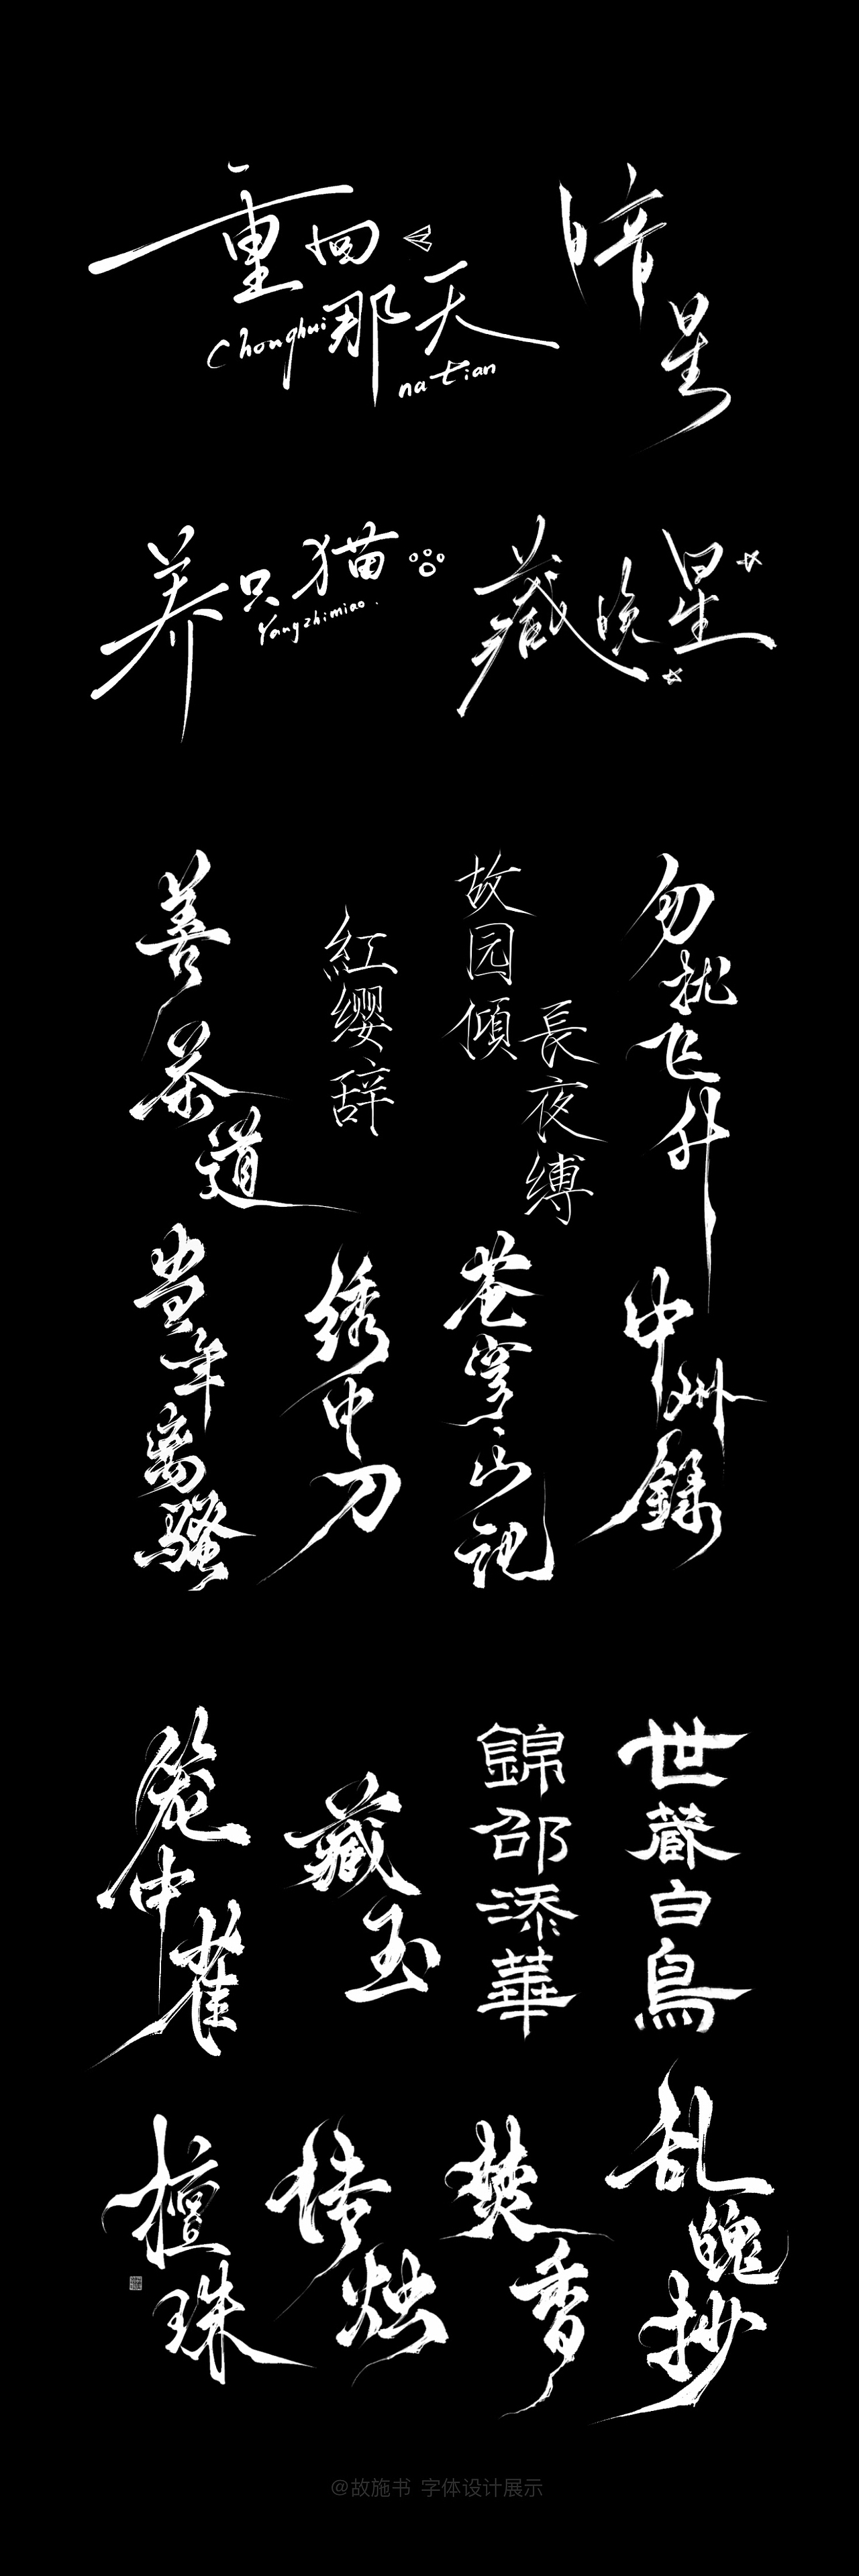 重回
Chonghui
那天
na tian
暗星
养只猫
Yangzhimiao.
藏晚星
善茶道
紅缨辞
故园倾
長夜缚
勿扰飞升
当年离骚
绣中刀
苍穹山记
中州録
笼中雀
藏玉
錦邵添華
世藏白鳥
檀珠
焚香
乱魄抄
@故施书 字体设计展示